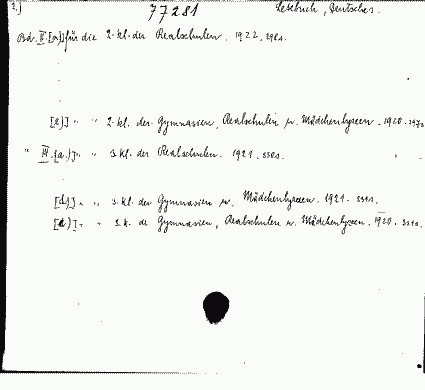 2.) 77281 Lesebuch, Deutsches.
Bd. II. [a)] für die 2. kl. der Realschulen. 1922. 298 s.
[c)] " " 2. kl. der Gymnasien, Realschulen u. Mädchenlyzeen. 1920.
" III. [a.)] " " 3. kl. der Realschulen. 1921. 330 s.
[b)] " " 3. kl. der Gymnasien u. Mädchenlyzeen. 1921.
" " 3. kl. der Gymnasien, Realschulen u. Mädchenlyzeen. 1920.